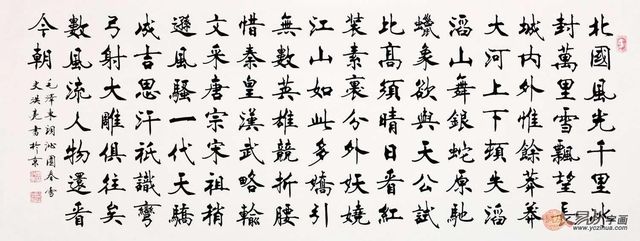 北國風光千里冰
封萬里雪飄望長
城内外惟餘莽莽
大河上下頓失滔
滔山舞銀蛇原馳
蠟象欲與天公試
比高須晴日看紅
裝素裹分外妖嬈
江山如此多嬌引
無數英雄競折腰
惜秦皇漢武略輸
文采唐宗宋祖稍
遜風騷一代天驕
成吉思汗祇識彎
弓射大雕俱往矣
數風流人物還看
今朝
毛澤東詞沁園春雪
書於京
字画
yczihua.com